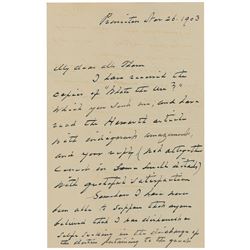 Princeton Nov 26. 1903
My dear Mr
I have received the
copies of "Wrote the
which you sent me, and have
read the article
with undisguised amazement,
and your reply (not altogether
correct in some small details)
with unstinted satisfaction
Somehow I have never
been able to suppose that anyone
believed that I was dishonest or
self seeking in the discharge of
the duties pertaining to the great